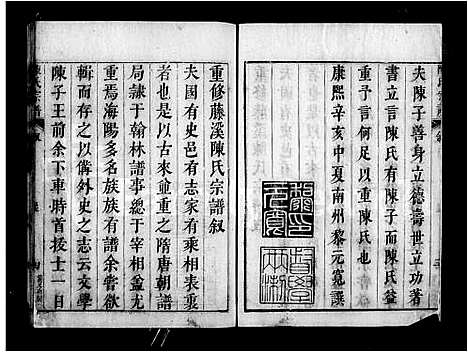 夫陳子善身立德壽世立功著
書立言陳氏之有陳子陳氏益
重予言何足以重陳氏也
康熙辛亥中夏南州黎元寬譔
重修藤溪陳氏宗譜叙
夫國有史邑有志家有乘相表
者也是以古來重之隋唐朝譜
局隷于翰林譜事總于宰相當
重焉海陽多名族族有乘余嘗欲
輯而存之以備外史之志云文學
陳子王前余下車時首接士一日